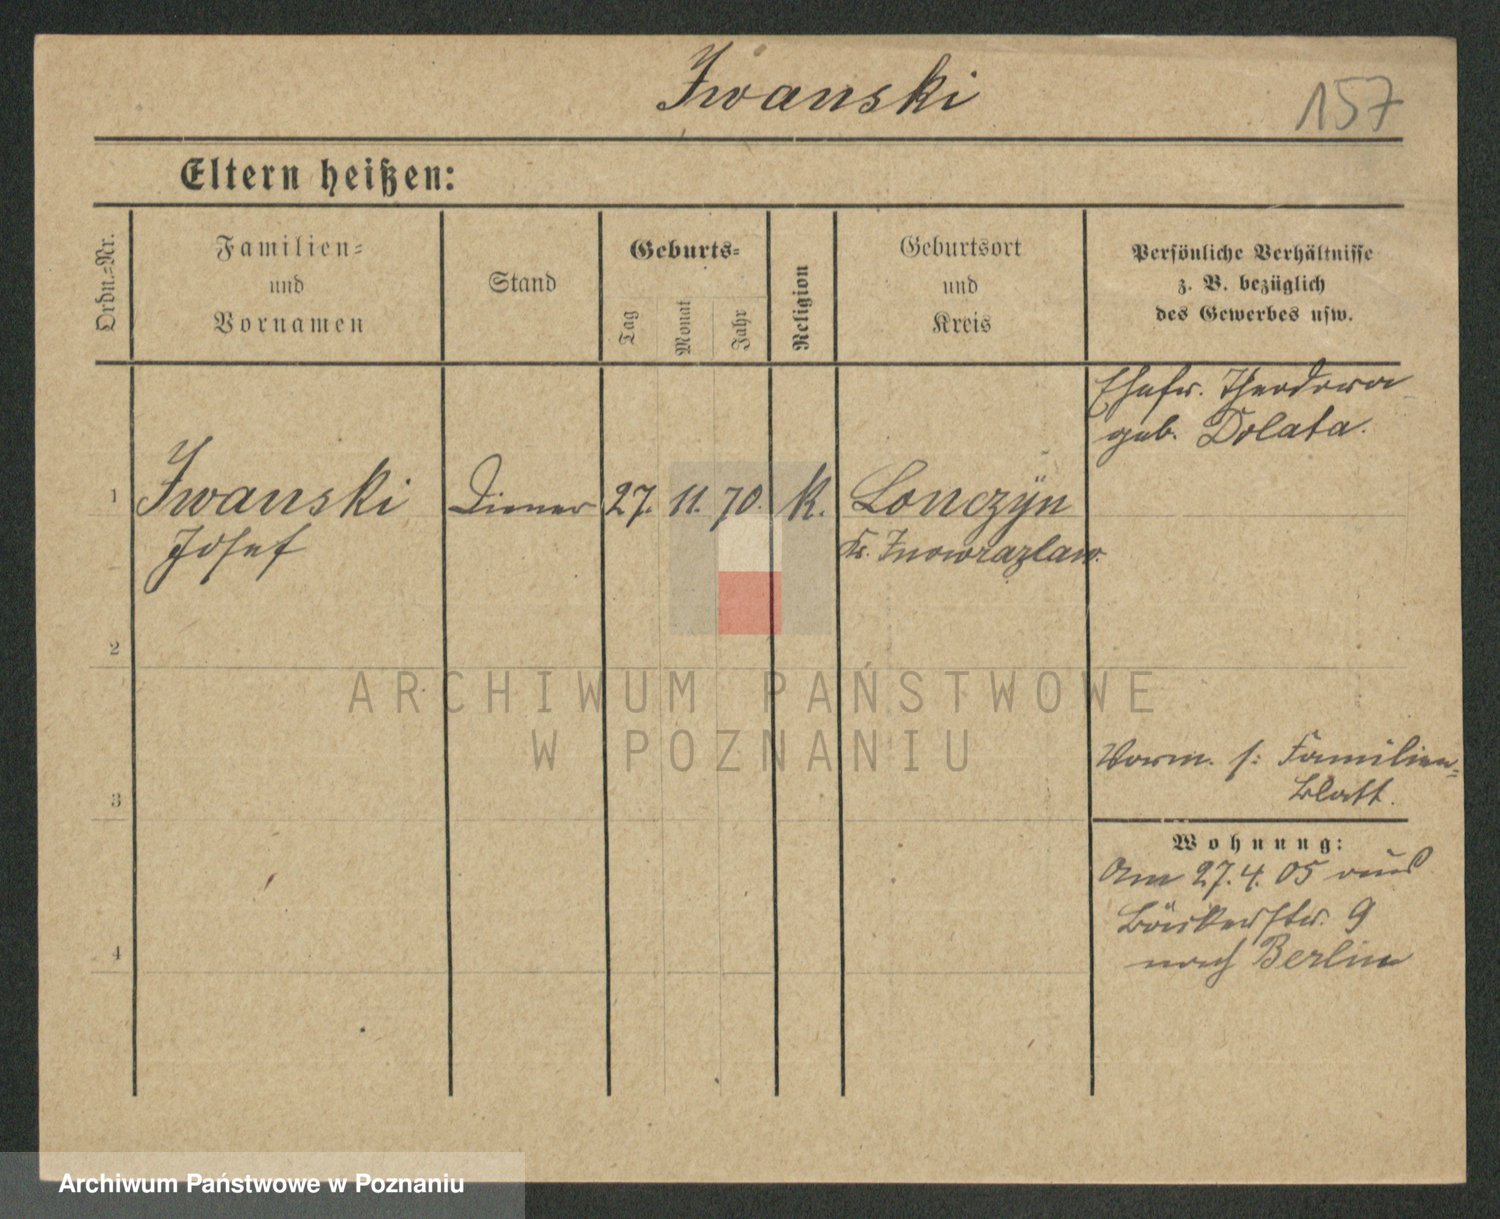 Iwanski
157
Eltern heißen:
Ordn.-Nr.
Familien-
und
Vornamen
Stand
Geburts-
Tag
Monat
Jahr
Religion
Geburtsort
und
Kreis
Persönliche Verhältnisse
z. B. bezüglich
des Gewerbes usw.
Ehefr. Theodora
geb. Dolata.
1
Iwanski
Josef
Diener
27.
11.
70.
K.
Lonczyn
Kr. Inowrazlaw.
2
ARCHIWUM PAŃSTWOWE
W POZNANIU
Vorm. s: Familien-
blatt.
3
Wohnung:
Am 27.4.05 aus
Bäckerstr. 9
nach Berlin
4
Archiwum Państwowe w Poznaniu